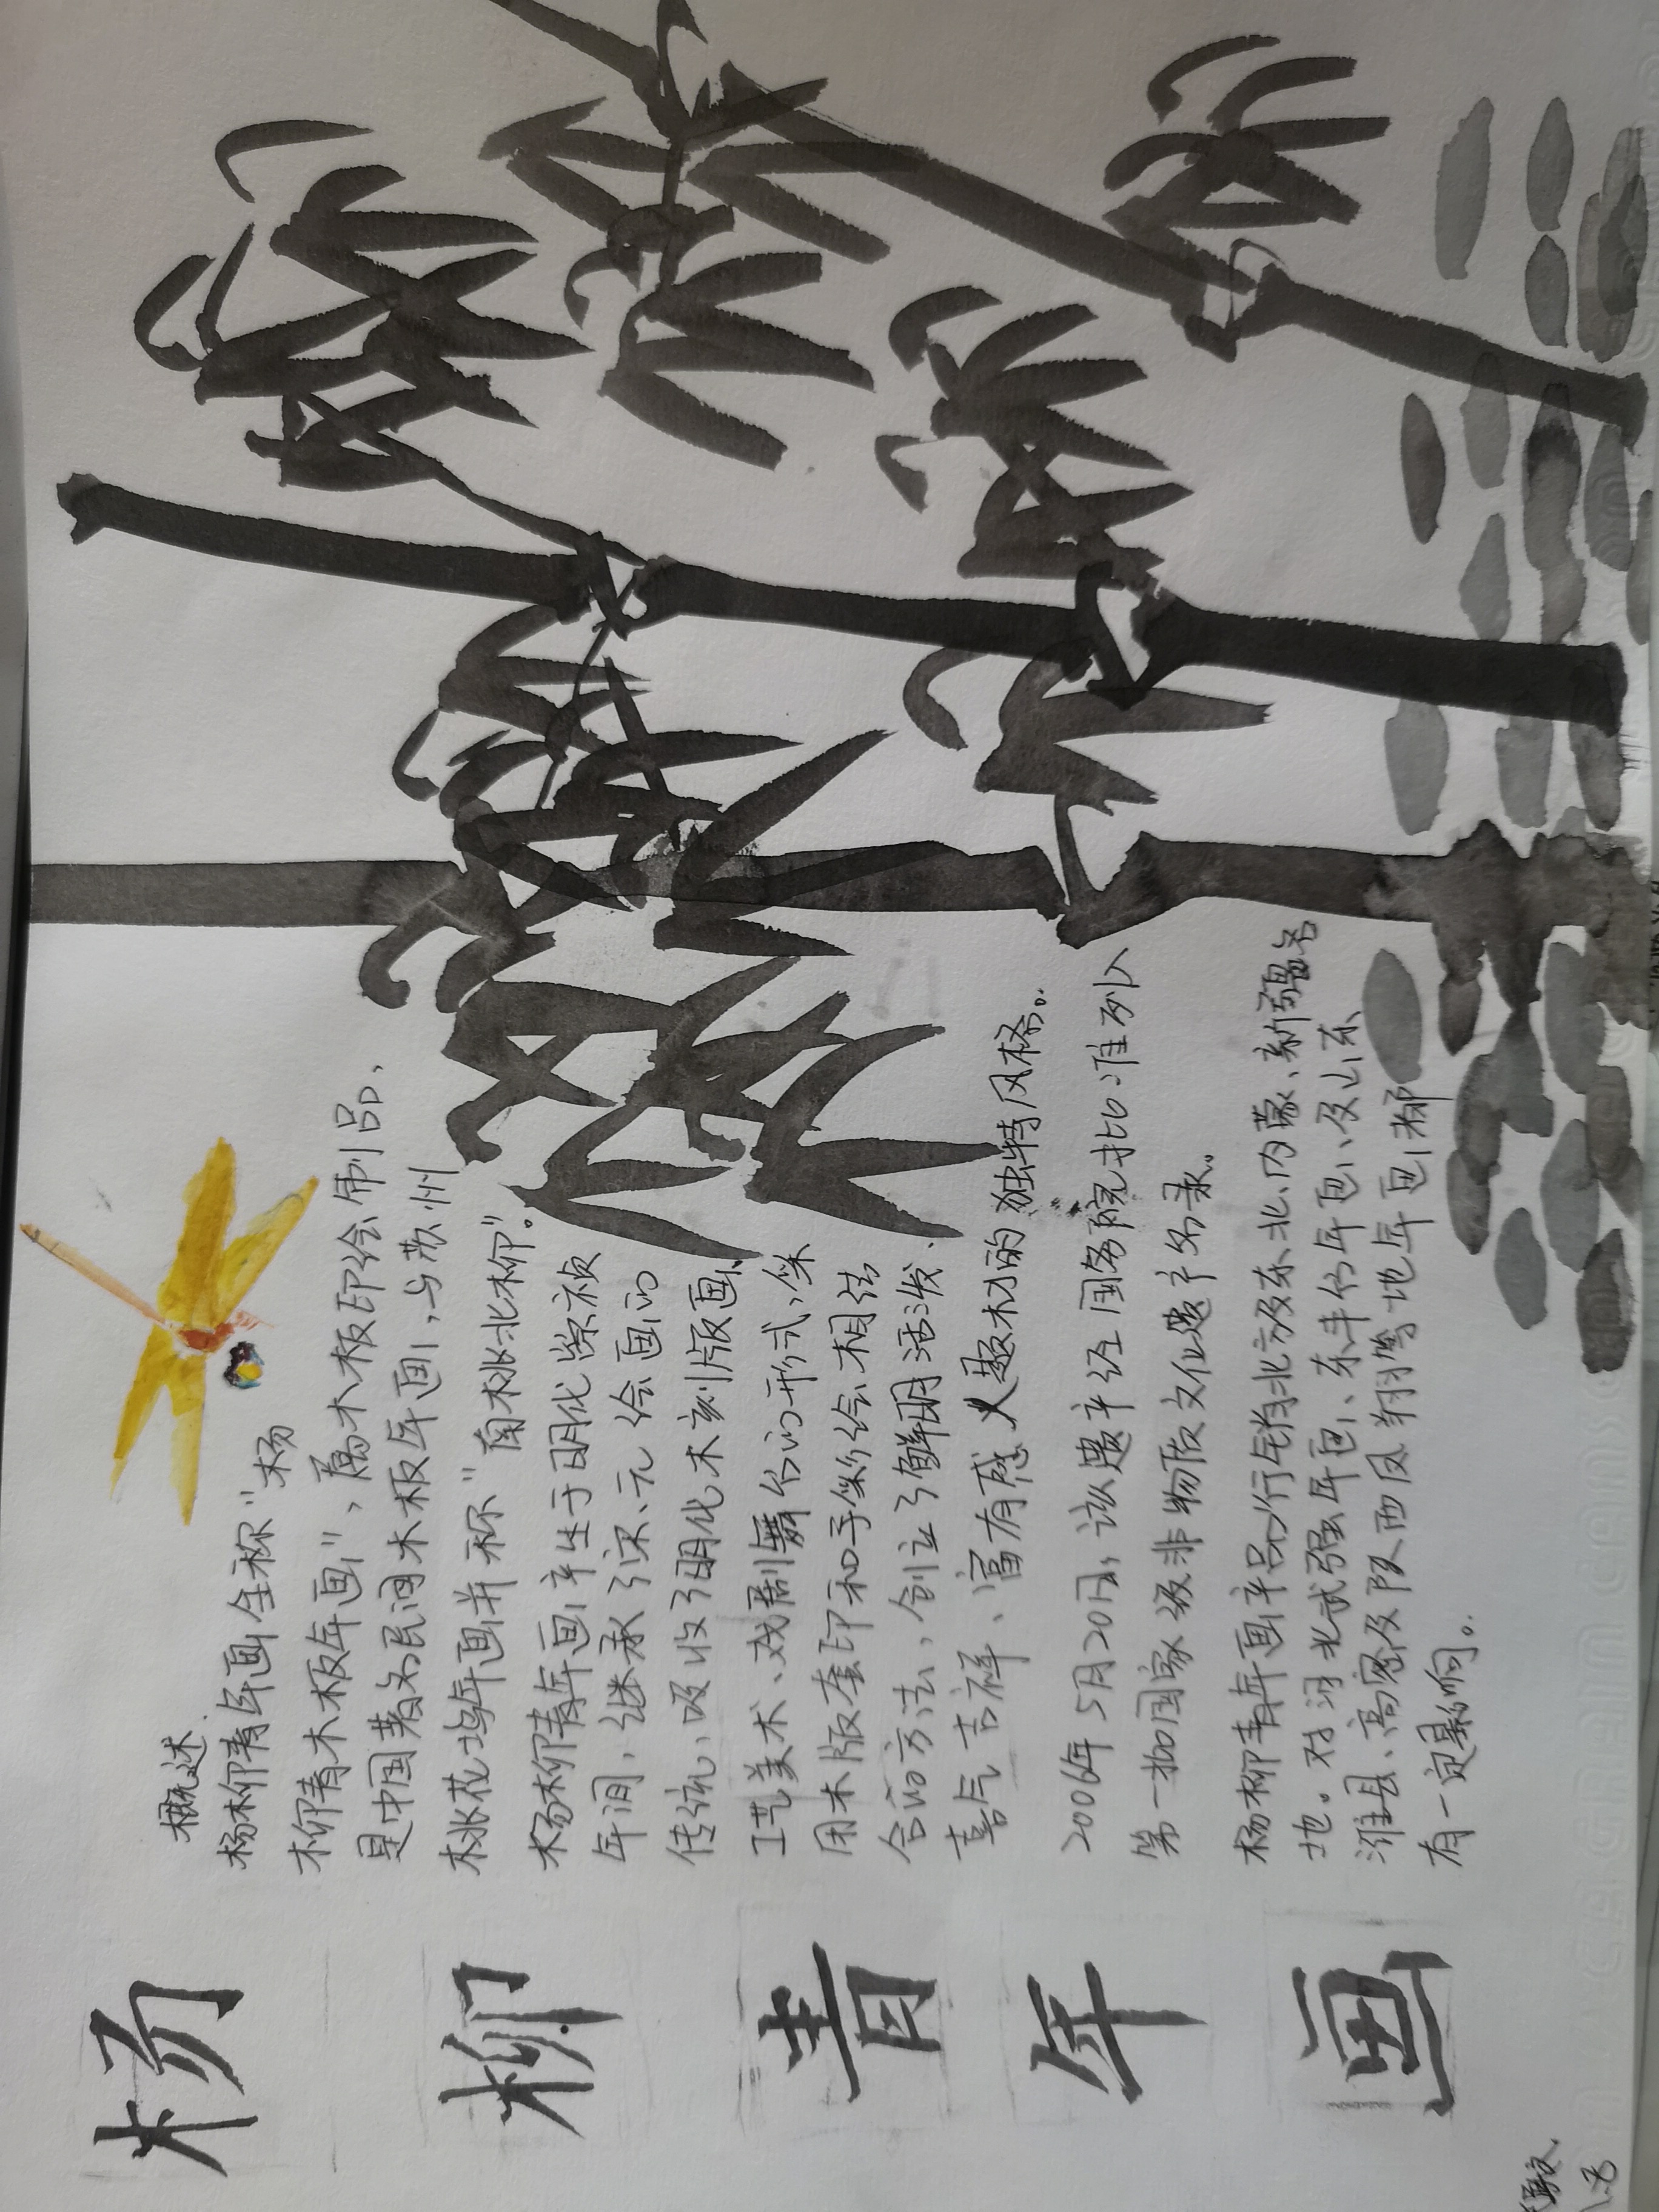 杨柳青年画
概述
杨柳青年画全称“杨
柳青木板年画”，属木板印绘制品，
是中国著名民间木板年画，与苏州
桃花坞年画并称“南桃北柳”。
杨柳青年画产生于明代崇祯
年间，继承了宋、元绘画的
传统，吸收了明代木刻版画、
工艺美术、戏剧舞台的形式，采
用木版套印和手工彩绘相结
合的方法，创立了鲜明活泼、
喜气吉祥、富有感人题材的独特风格。
2006年5月20日，该遗产经国务院批准列入
第一批国家级非物质文化遗产名录。
杨柳青年画产品行销北方及东北、内蒙、新疆各
地。对河北武强年画、东丰台年画、及山东
潍县、高密及陕西凤翔等地年画都
有一定影响。